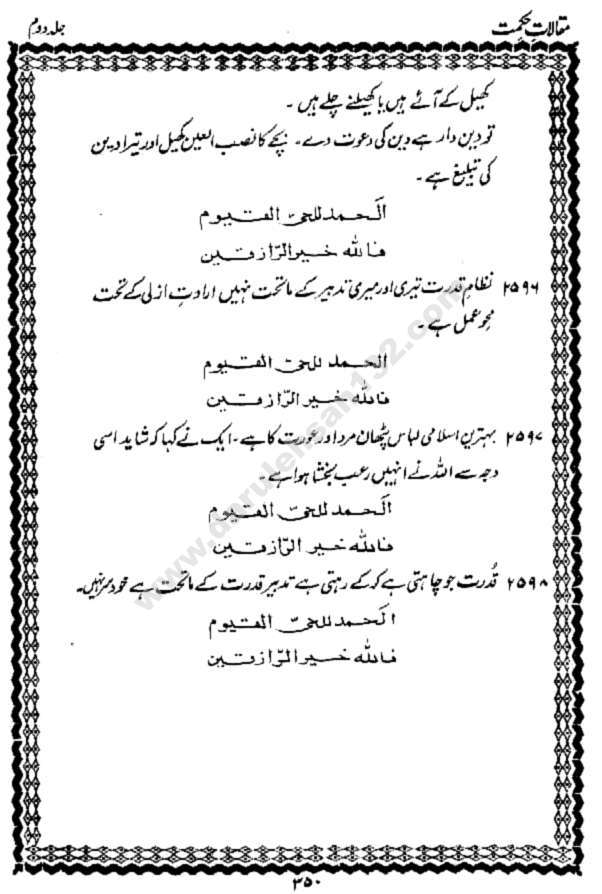 مقالاتِ حکمت
جلد دوم
کھیل کے آئے ہیں یا کھیلنے چلے ہیں ۔
تو دین دار ہے دین کی دعوت دے ۔ بچے کا نصب العین کھیل اور تیرا دین
کی تبلیغ ہے ۔
الحمد للحیّ القیوم
فاللہ خیر الرّازقین
۲۵۹۶ نظامِ قدرت تیری اور میری تدبیر کے ماتحت نہیں ارادتِ ازلی کے تحت
محوِ عمل ہے ۔
الحمد للحیّ القیوم
فاللہ خیر الرّازقین
۲۵۹۷ بہترین اسلامی لباس پٹھان مرد اور عورت کا ہے ۔ ایک نے کہا کہ شاید اسی
وجہ سے اللہ نے انہیں رعب بخشا ہوا ہے ۔
الحمد للحیّ القیوم
فاللہ خیر الرّازقین
۲۵۹۸ قُدرت جو چاہتی ہے کر کے رہتی ہے تدبیر قدرت کے ماتحت ہے خود سر نہیں ۔
الحمد للحیّ القیوم
فاللہ خیر الرّازقین
۳۵۰
www.darulehsan132.com